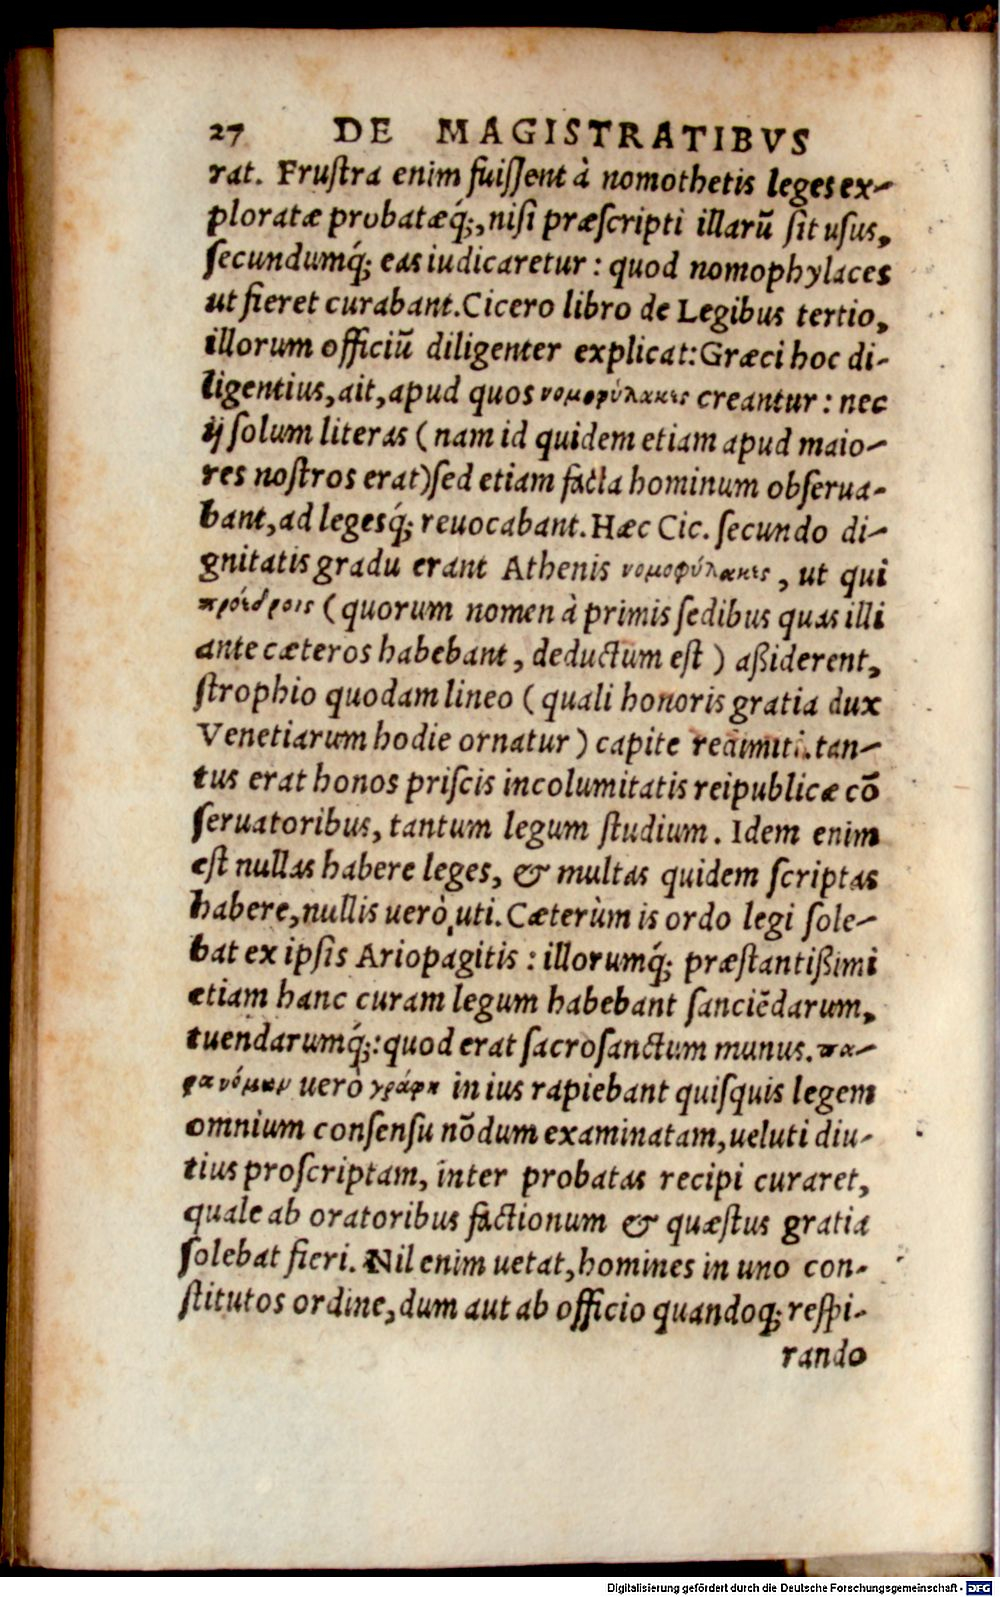 27 DE MAGISTRATIBVS
rat. Fruſtra enim fuiſſent à nomothetis leges ex-
ploratæ probatæq́;, niſi præſcripti illarũ ſit uſus,
ſecundumq́; eas iudicaretur: quod nomophylaces
ut fieret curabant. Cicero libro de Legibus tertio,
illorum officiũ diligenter explicat: Græci hoc di-
ligentius, ait, apud quos νομοφύλακες creantur: nec
ij ſolum literas (nam id quidem etiam apud maio-
res noſtros erat) ſed etiam facta hominum obſerua-
bant, ad legesq́; reuocabant. Hæc Cic. ſecundo di-
gnitatis gradu erant Athenis νομοφύλακες, ut qui
προέδροις (quorum nomen à primis ſedibus quas illi
ante cæteros habebant, deductum eſt) aßiderent,
ſtrophio quodam lineo (quali honoris gratia dux
Venetiarum hodie ornatur) capite redimiti. tan-
tus erat honos priſcis incolumitatis reipublicæ cō
ſeruatoribus, tantum legum ſtudium. Idem enim
eſt nullas habere leges, & multas quidem ſcriptas
habere, nullis uerò uti. Cæterùm is ordo legi ſole-
bat ex ipſis Ariopagitis: illorumq́; præſtantißimi
etiam hanc curam legum habebant ſanciẽdarum,
tuendarumq́;: quod erat ſacroſanctum munus. πα-
ρανόμων uerò γράφη in ius rapiebant quiſquis legem
omnium conſenſu nōdum examinatam, ueluti diu-
tius proſcriptam, inter probatas recipi curaret,
quale ab oratoribus factionum & quæſtus gratia
ſolebat fieri. Nil enim uetat, homines in uno con-
ſtitutos ordine, dum aut ab officio quandoq; reſpi-
rando
Digitalisierung gefördert durch die Deutsche Forschungsgemeinschaft - DFG